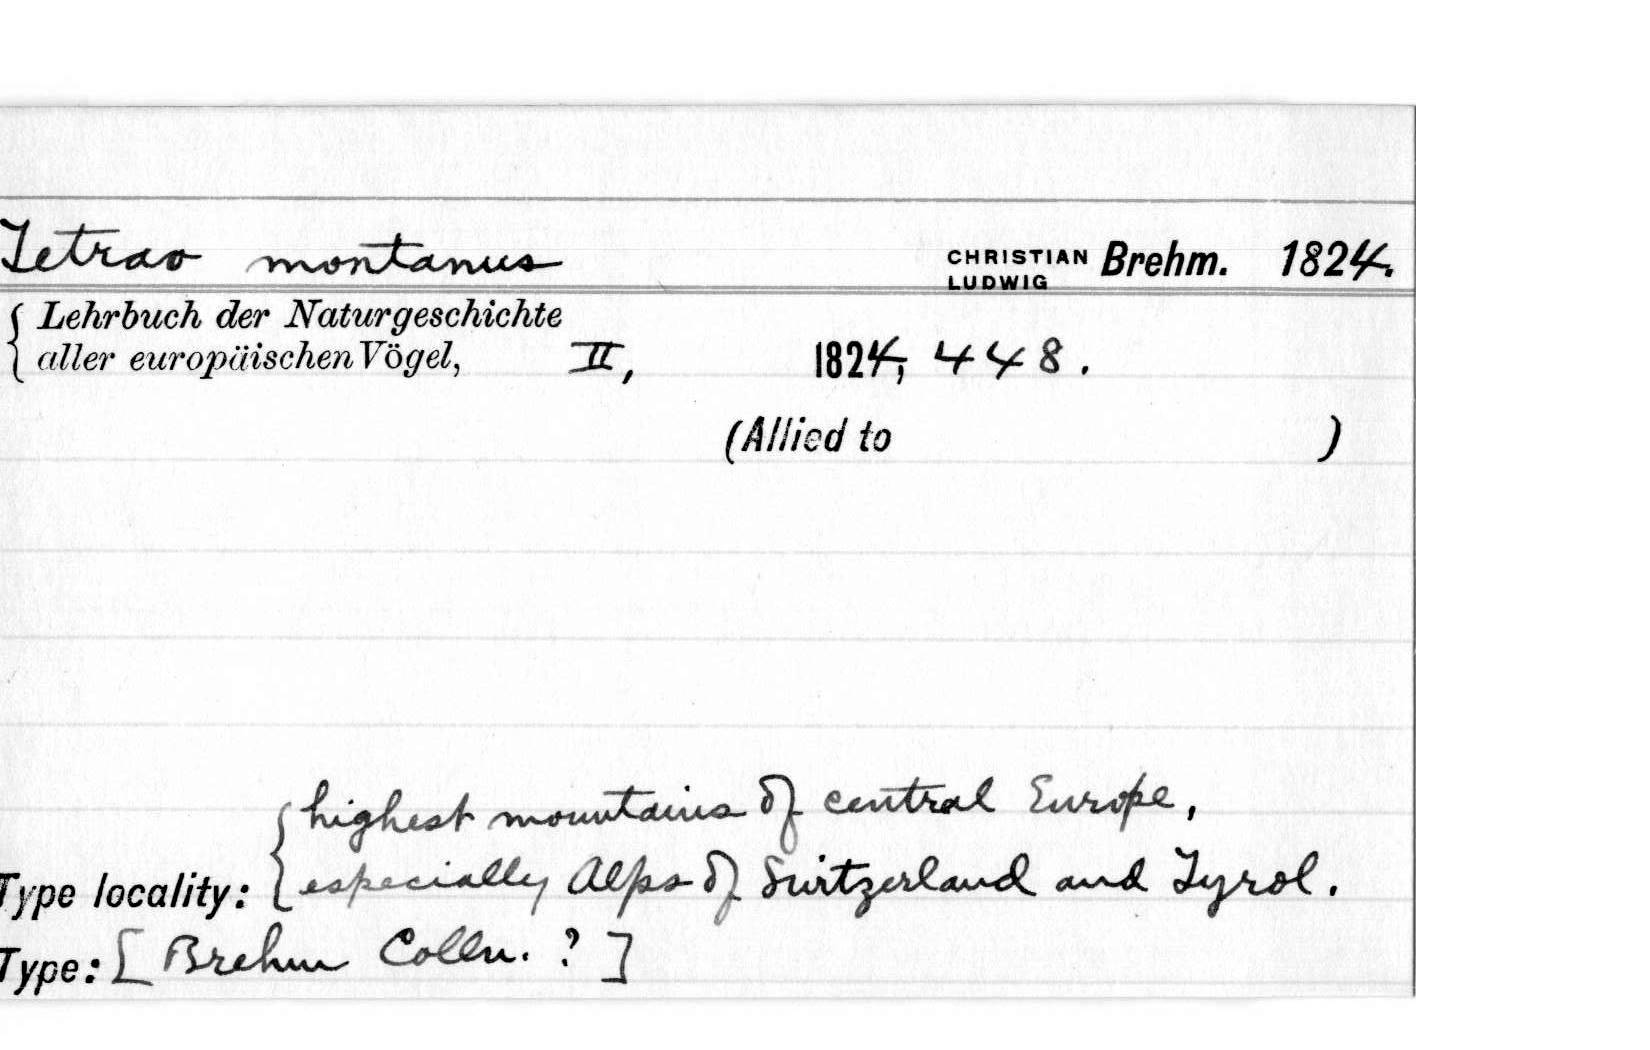 Tetrao montanus CHRISTIAN LUDWIG Brehm. 1824.
Lehrbuch der Naturgeschichte
aller europäischen Vögel, II, 1824, 448.
(Allied to )
highest mountains of central Europe,
Type locality: especially Alps of Switzerland and Tyrol.
Type: [ Brehm Colln. ? ]